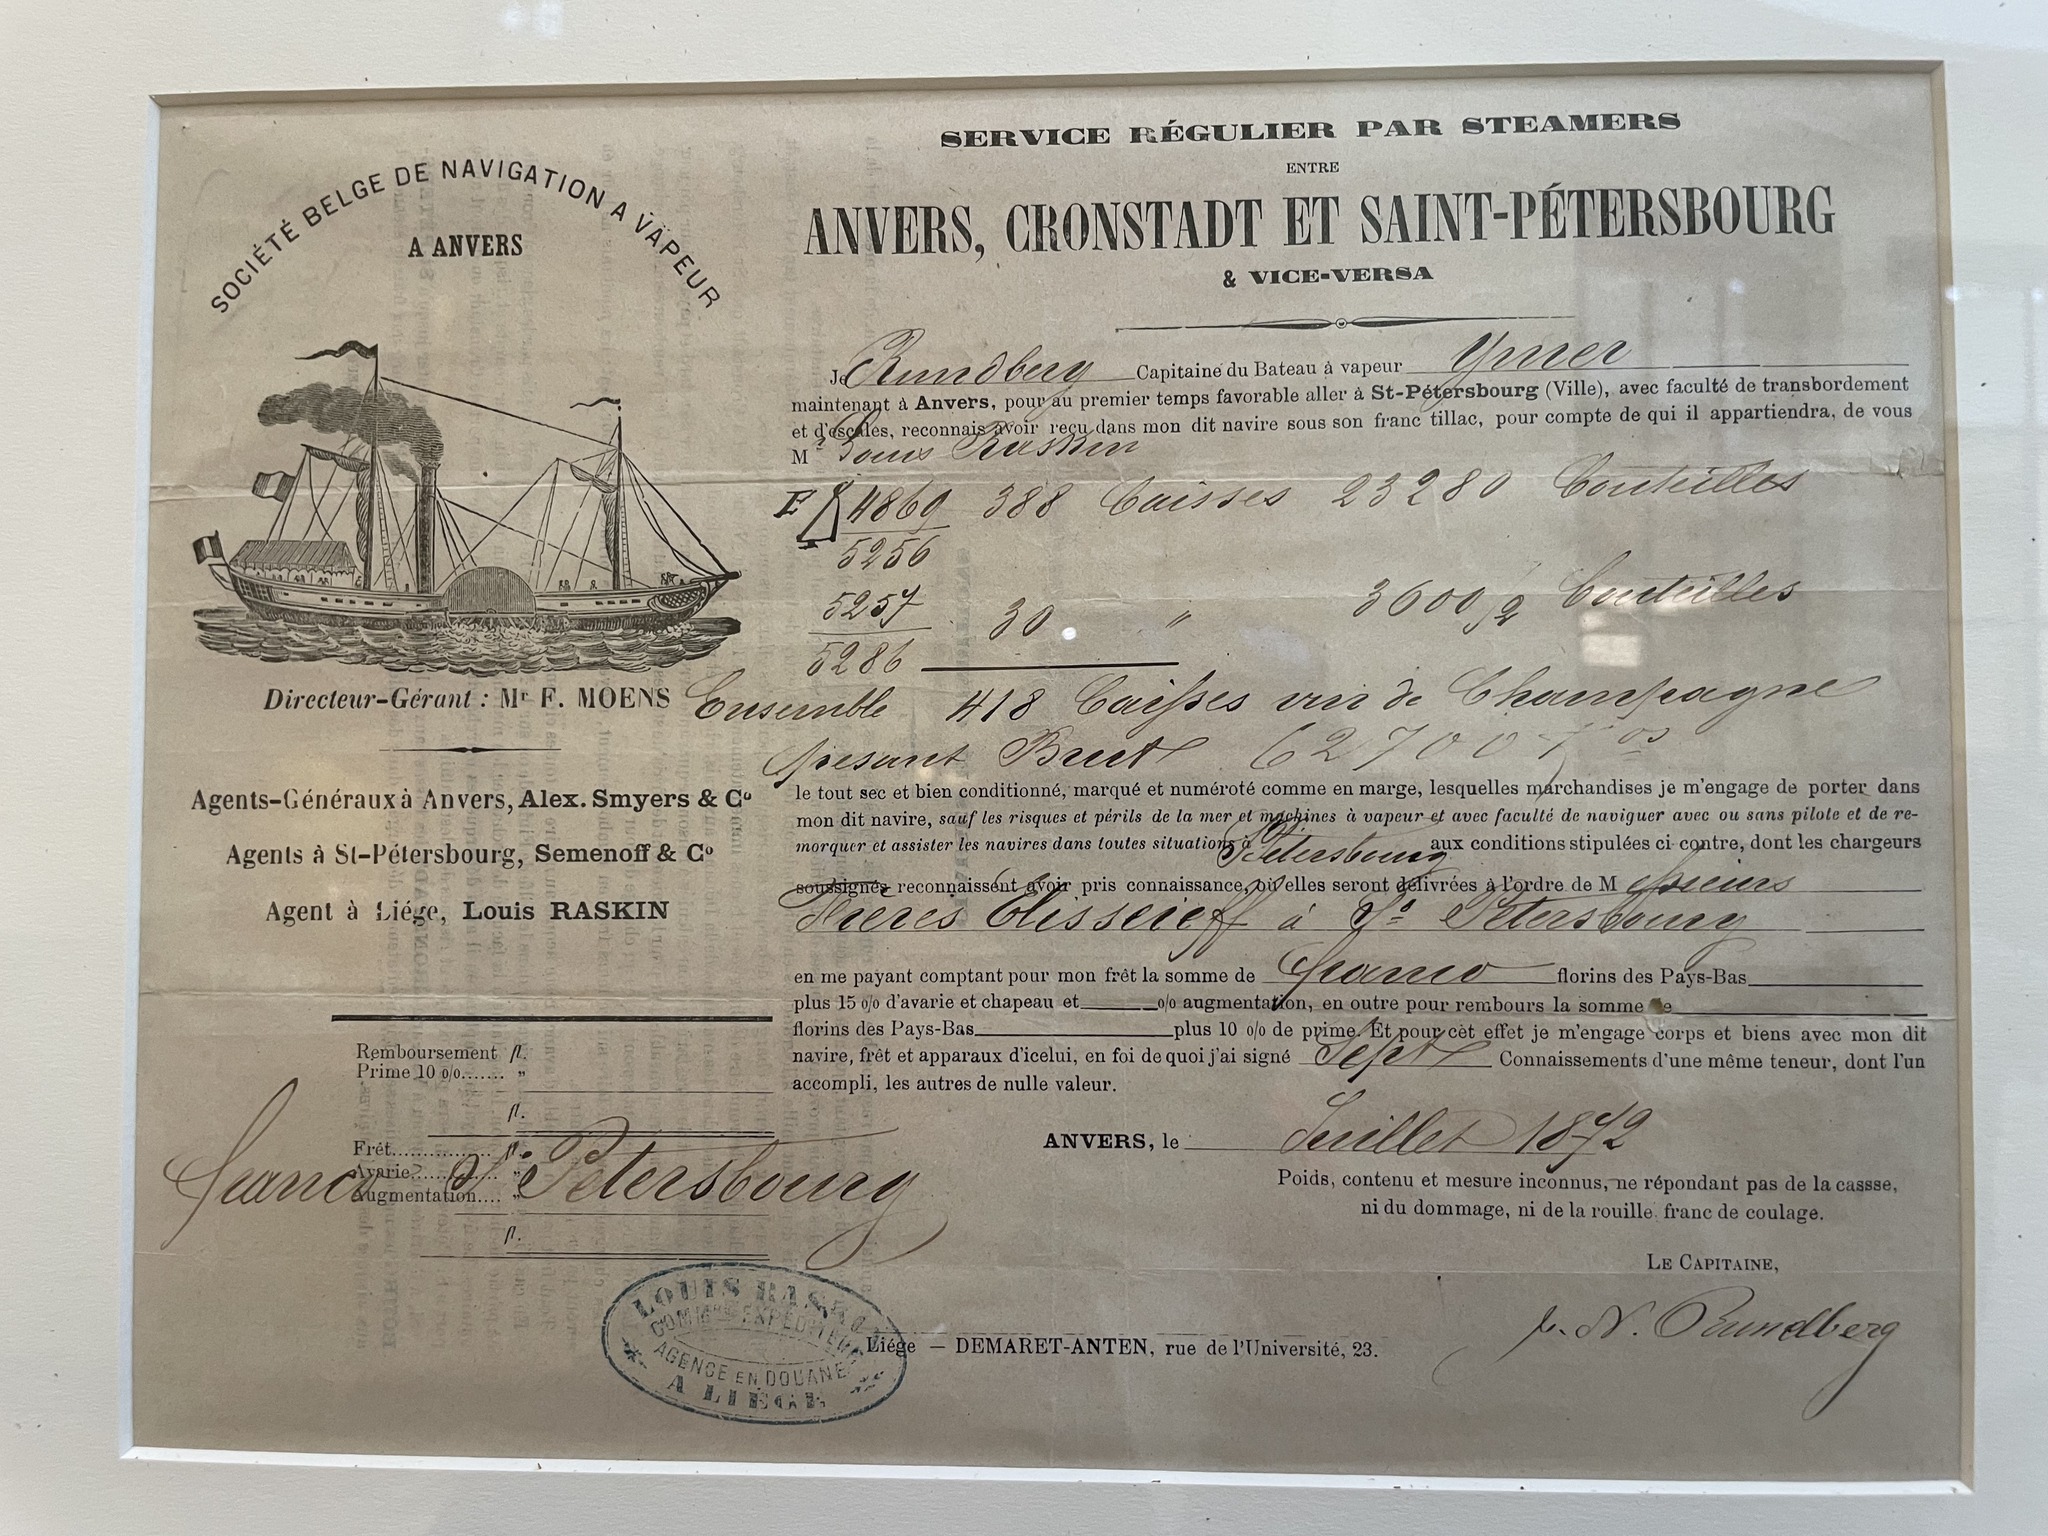 SOCIÉTÉ BELGE DE NAVIGATION A VAPEUR
A ANVERS
Directeur-Gérant : Mr F. MOENS
Agents-Généraux à Anvers, Alex. Smyers & Co
Agents à St-Pétersbourg, Semenoff & Co
Agent à Liége, Louis RASKIN
Remboursement fl.
Prime 10 %....... "
fl.
Frêt............... fl.
Avarie............. "
Augmentation.... "
fl.
franco St Petersbourg
SERVICE RÉGULIER PAR STEAMERS
ENTRE
ANVERS, CRONSTADT ET SAINT-PÉTERSBOURG
& VICE-VERSA
Je Rundberg Capitaine du Bateau à vapeur Ymer
maintenant à Anvers, pour au premier temps favorable aller à St-Pétersbourg (Ville), avec faculté de transbordement
et d'escales, reconnais avoir reçu dans mon dit navire sous son franc tillac, pour compte de qui il appartiendra, de vous
Mr Louis Raskin
E 4869 388 Caisses 23280 Bouteilles
5256
5257 30 " 3600/2 Bouteilles
5286
Ensemble 418 Caisses vin de Champagne
pesant Brut 62700 Kos
le tout sec et bien conditionné, marqué et numéroté comme en marge, lesquelles marchandises je m'engage de porter dans
mon dit navire, sauf les risques et périls de la mer et machines à vapeur et avec faculté de naviguer avec ou sans pilote et de re-
morquer et assister les navires dans toutes situations à Pétersbourg aux conditions stipulées ci-contre, dont les chargeurs
soussignés reconnaissent avoir pris connaissance, où elles seront délivrées à l'ordre de M essieurs
Frères Elisseieff à St Petersbourg
en me payant comptant pour mon frêt la somme de franco florins des Pays-Bas
plus 15 % d'avarie et chapeau et % augmentation, en outre pour rembours la somme de
florins des Pays-Bas plus 10 % de prime. Et pour cet effet je m'engage corps et biens avec mon dit
navire, frêt et apparaux d'icelui, en foi de quoi j'ai signé Sept Connaissements d'une même teneur, dont l'un
accompli, les autres de nulle valeur.
ANVERS, le Juillet 1872
Poids, contenu et mesure inconnus, ne répondant pas de la cassse,
ni du dommage, ni de la rouille franc de coulage.
LE CAPITAINE,
N. Rundberg
LOUIS RASKIN
COMMre EXPÉDITEUR
AGENCE EN DOUANE
A LIÉGE
Liége — DEMARET-ANTEN, rue de l'Université, 23.